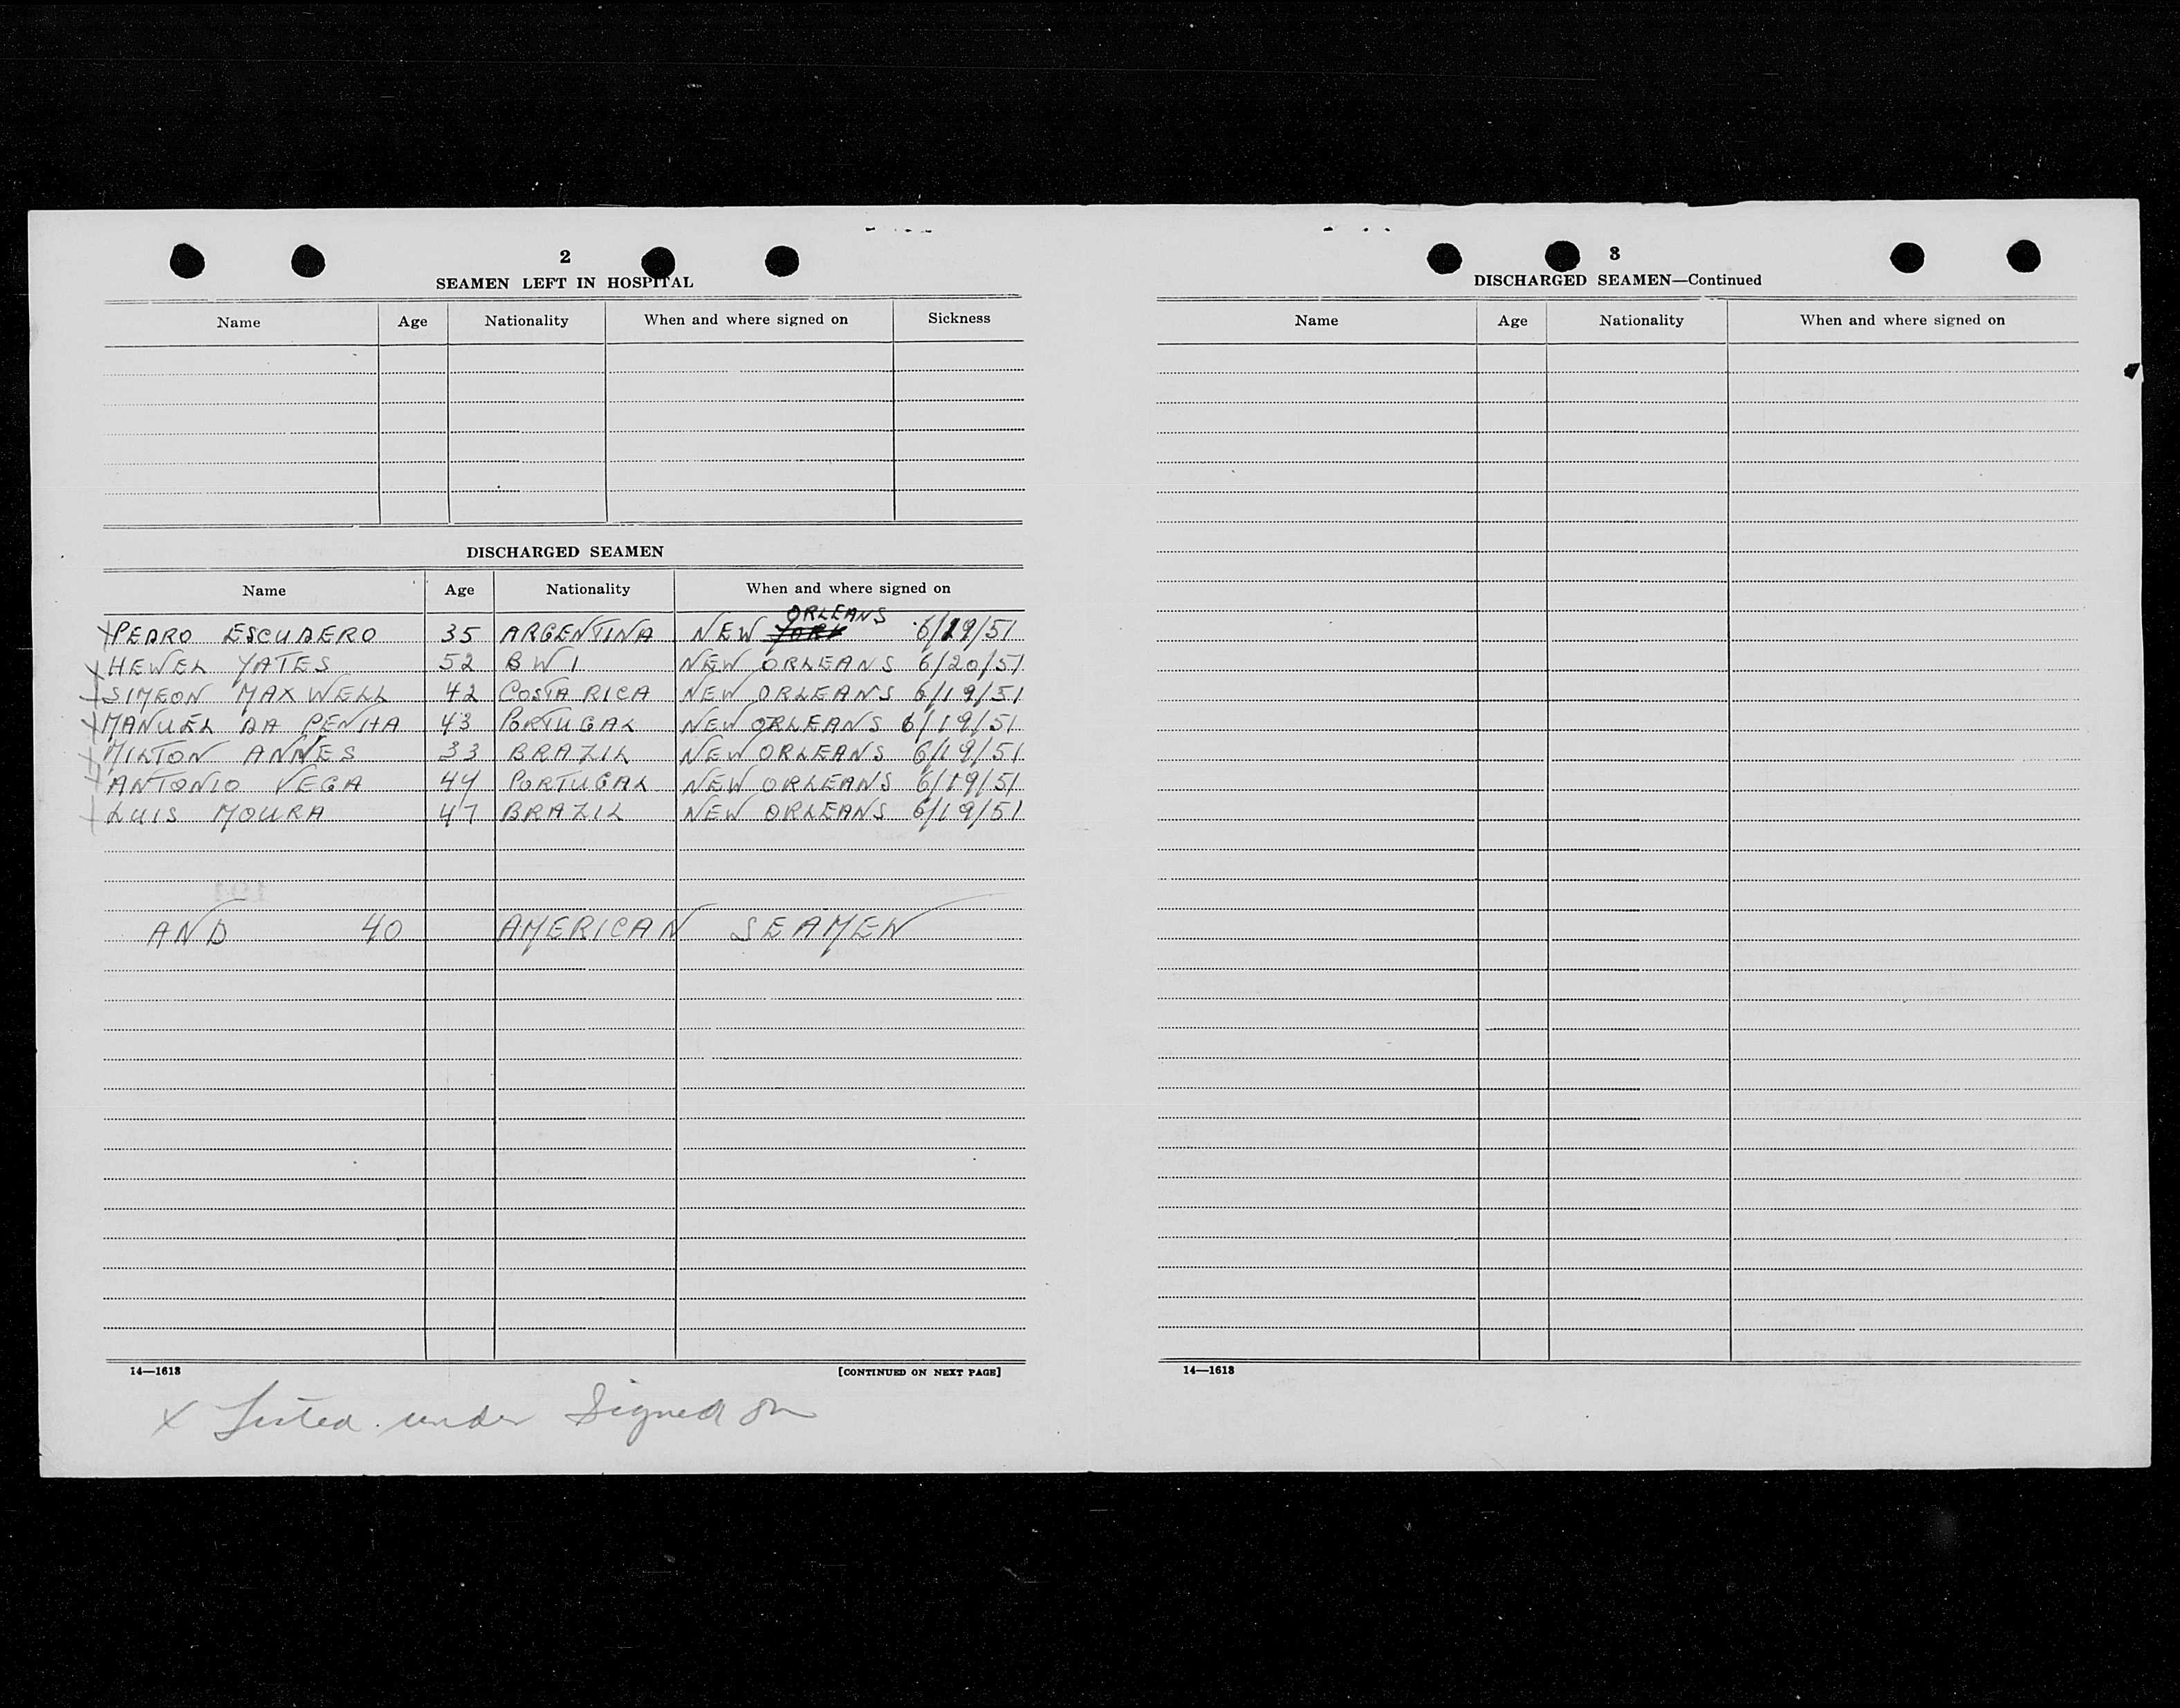 2
SEAMEN LEFT IN HOSPITAL
Name Age Nationality When and where signed on Sickness
DISCHARGED SEAMEN
Name Age Nationality When and where signed on
ORLEANS
X PEDRO ESCUDERO 35 ARGENTINA NEW YORK 6/19/51
X HEWEL YATES 52 BWI NEW ORLEANS 6/20/51
X SIMEON MAXWELL 42 COSTA RICA NEW ORLEANS 6/19/51
X MANUEL DA PENHA 43 PORTUGAL NEW ORLEANS 6/19/51
X MILTON ANNES 33 BRAZIL NEW ORLEANS 6/19/51
X ANTONIO VEGA 44 PORTUGAL NEW ORLEANS 6/19/51
X LUIS MOURA 47 BRAZIL NEW ORLEANS 6/19/51
AND 40 AMERICAN SEAMEN
14—1613 [CONTINUED ON NEXT PAGE]
X Listed under Signed on
3
DISCHARGED SEAMEN—Continued
Name Age Nationality When and where signed on
14—1613